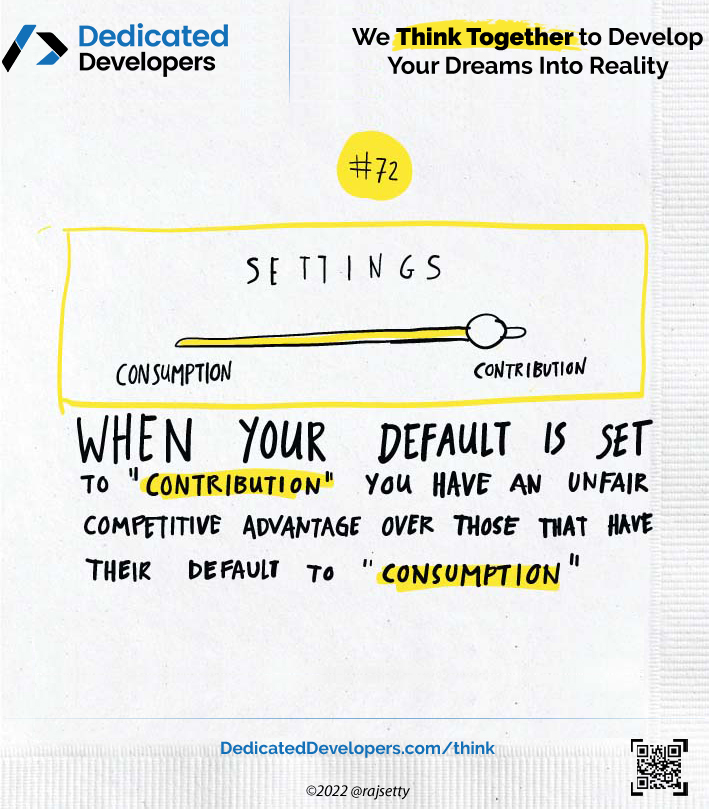 Dedicated
Developers
We Think Together to Develop
Your Dreams Into Reality
#72
SETTINGS
CONSUMPTION
CONTRIBUTION
WHEN YOUR DEFAULT IS SET
TO "CONTRIBUTION" YOU HAVE AN UNFAIR
COMPETITIVE ADVANTAGE OVER THOSE THAT HAVE
THEIR DEFAULT TO "CONSUMPTION"
DedicatedDevelopers.com/think
©2022 @rajsetty